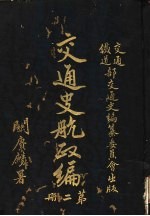 交通
鐵道部交通史編纂委員會出版
交通史航政編
第二冊
關賡麟署